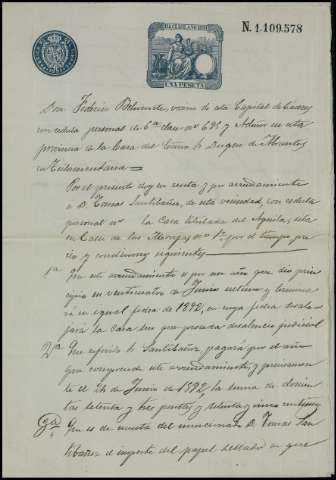 N. 1.109.578
UNA PESETA
Don Federico vecino de esta Capital de
con cédula personal de 6ª clase nº 695 y Admor en esta
provincia de la Casa del Excmo Sr Duque de Abrantes
en Testamentaria
Por el presente doy en renta y por arrendamiento
a D. Tomas Santibañez, de esta vecindad, con cedula
personal nº la Casa titulada del Aguila, sita
en Calle de nº 1º por el tiempo pre
cio y condiciones siguientes
1ª Que este arrendamiento es por un año que dio prin
cipio en veinticuatro de Junio ultimo y termina
rá en igual fecha de 1892, en cuya fecha desalo
jará la casa sin que proceda desahucio judicial
2ª Que el referido Sr Santibañez pagará por el año
que comprende este arrendamiento, y precisamen
te el 24 de Junio de 1892, la suma de doscien
tas setenta y tres pesetas y setenta y cinco centimos
3ª Que es de cuenta del mencionado D. Tomas San
tibañez el importe del papel sellado en que